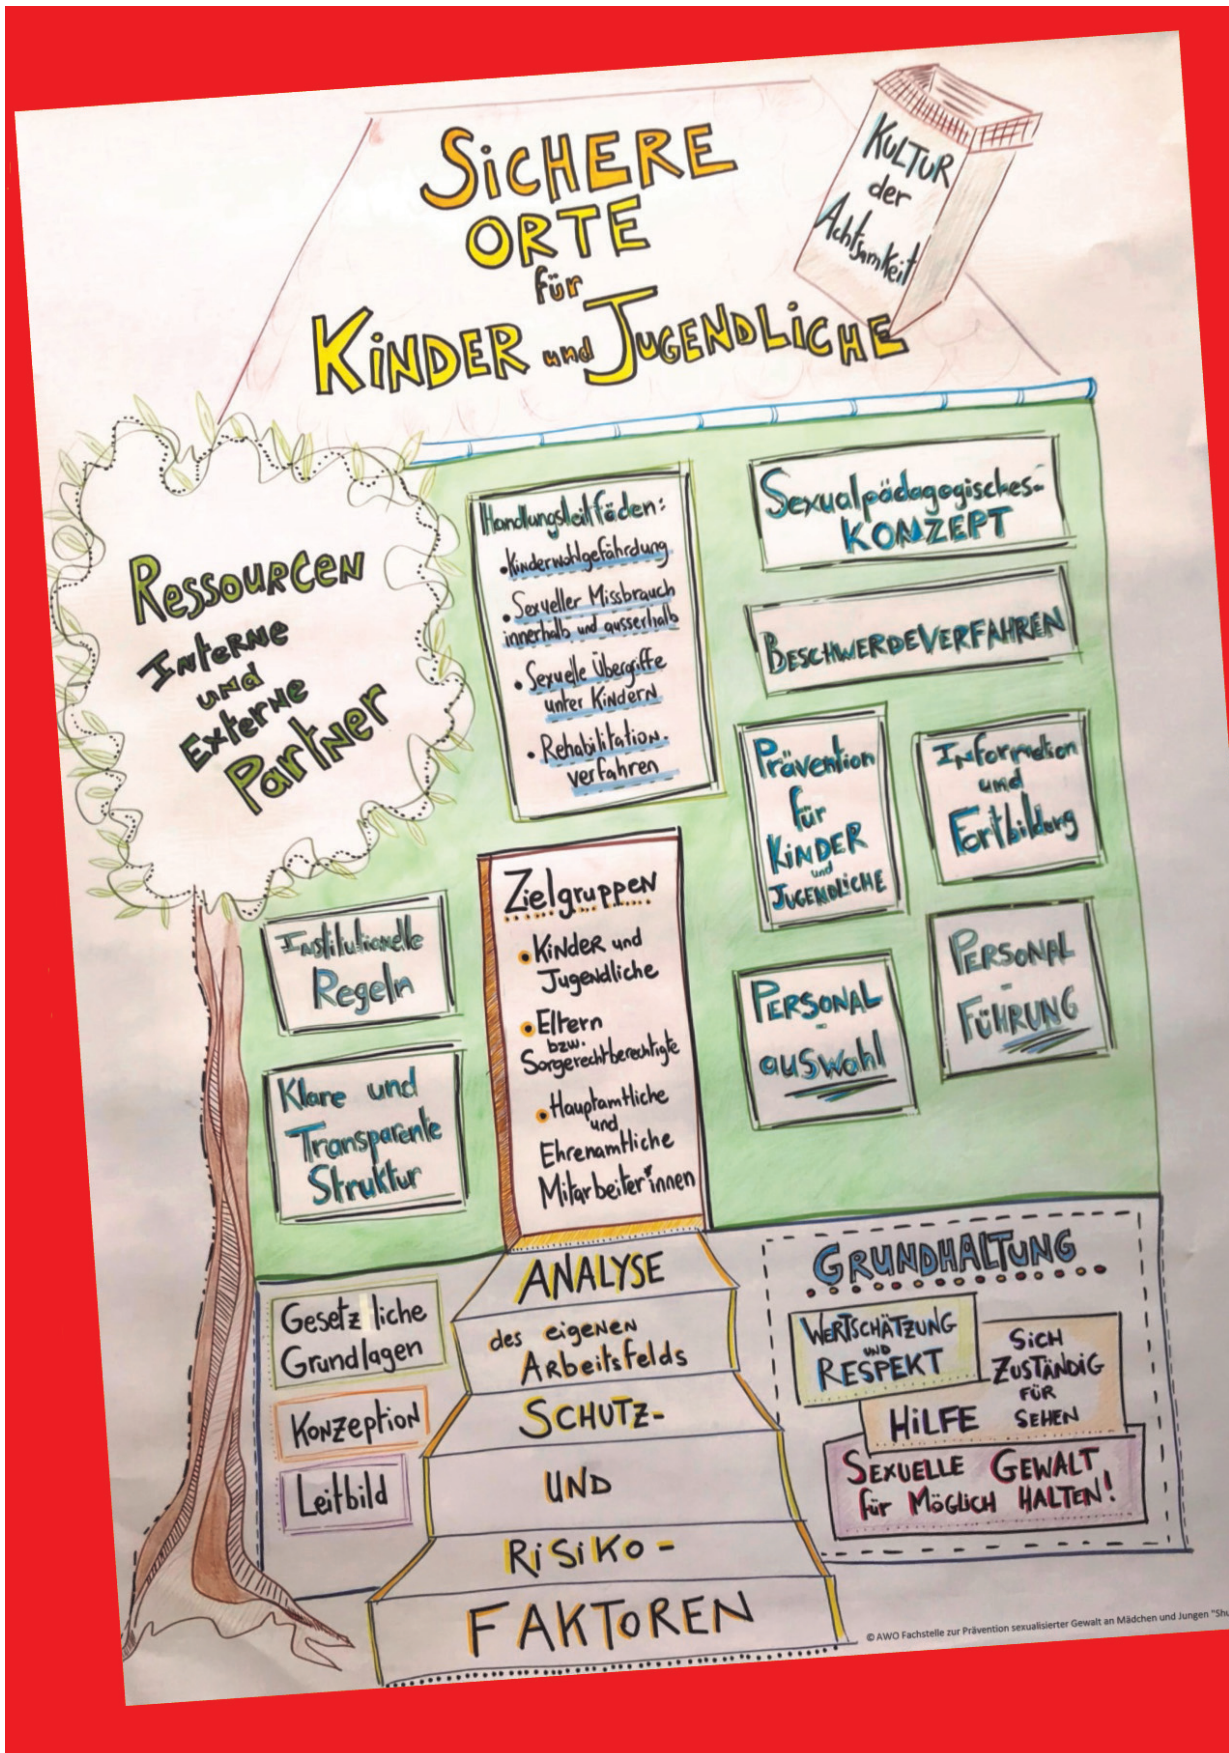 SICHERE
ORTE
für
KINDER und JUGENDLICHE
KULTUR
der
Achtsamkeit
RESSOURCEN
INTERNE
und
EXTERNE
Partner
Handlungsleitfäden:
• Kinderwohlgefährdung
• Sexueller Missbrauch
innerhalb und ausserhalb
• Sexuelle Übergriffe
unter Kindern
• Rehabilitation-
verfahren
Sexualpädagogisches-
KONZEPT
BESCHWERDEVERFAHREN
Prävention
für
KINDER
und
JUGENDLICHE
Information
und
Fortbildung
PERSONAL
-
auswahl
PERSONAL
-
FÜHRUNG
Institutionelle
Regeln
Klare und
Transparente
Struktur
Zielgruppen
• Kinder und
Jugendliche
• Eltern
bzw.
Sorgerechtberechtigte
• Hauptamtliche
und
Ehrenamtliche
Mitarbeiter*innen
ANALYSE
des eigenen
Arbeitsfelds
SCHUTZ-
UND
RISIKO-
FAKTOREN
Gesetzliche
Grundlagen
Konzeption
Leitbild
GRUNDHALTUNG
WERTSCHÄTZUNG
UND
RESPEKT
SICH
ZUSTÄNDIG
FÜR
HILFE SEHEN
SEXUELLE GEWALT
für MÖGLICH HALTEN!
© AWO Fachstelle zur Prävention sexualisierter Gewalt an Mädchen und Jungen "Shu